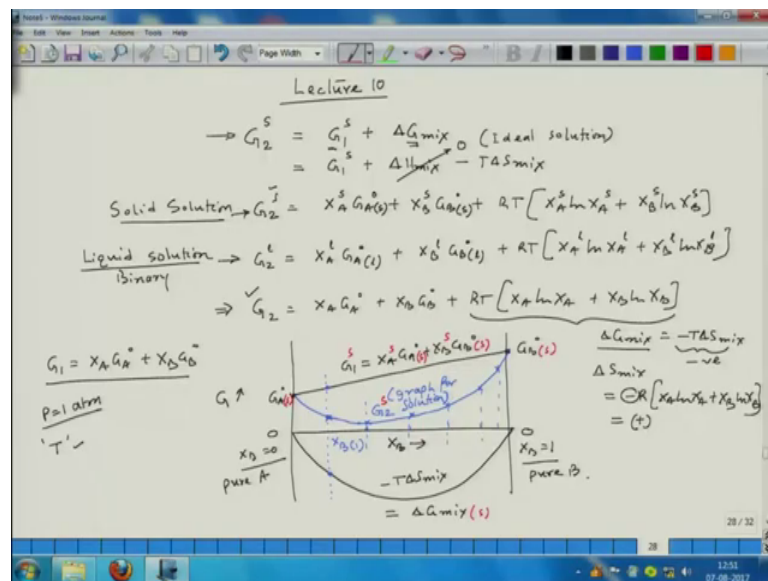 Note5 - Windows Journal
File Edit View Insert Actions Tools Help
Page Width
Lecture 10
→ G₂ˢ = G₁ˢ + ΔGmix (Ideal solution)
= G₁ˢ + ΔHmix 0 - TΔSmix
Solid Solution → G₂ˢ = X_Aˢ G_A(s)° + X_Bˢ G_B(s)° + RT[X_Aˢ ln X_Aˢ + X_Bˢ ln X_Bˢ]
Liquid solution → G₂ˡ = X_Aˡ G_A(l)° + X_Bˡ G_B(l)° + RT[X_Aˡ ln X_Aˡ + X_Bˡ ln X_Bˡ]
Binary
⇒ G₂ = X_A G_A° + X_B G_B° + RT[X_A ln X_A + X_B ln X_B]
G₁ = X_A G_A° + X_B G_B°
P=1 atm
'T'
G ↑
G_A°(s)
G₁ˢ = X_Aˢ G_A°(s) + X_Bˢ G_B°(s)
G_B°(s)
G₂ˢ (graph for solution)
ΔGmix = -TΔSmix
-ve
ΔSmix
= -R[X_A ln X_A + X_B ln X_B]
= (+)
0
X_B(1)
X_B →
0
X_B=0
pure A
X_B=1
pure B.
-TΔSmix
= ΔGmix(s)
28 / 32
28
12:51
07-08-2017